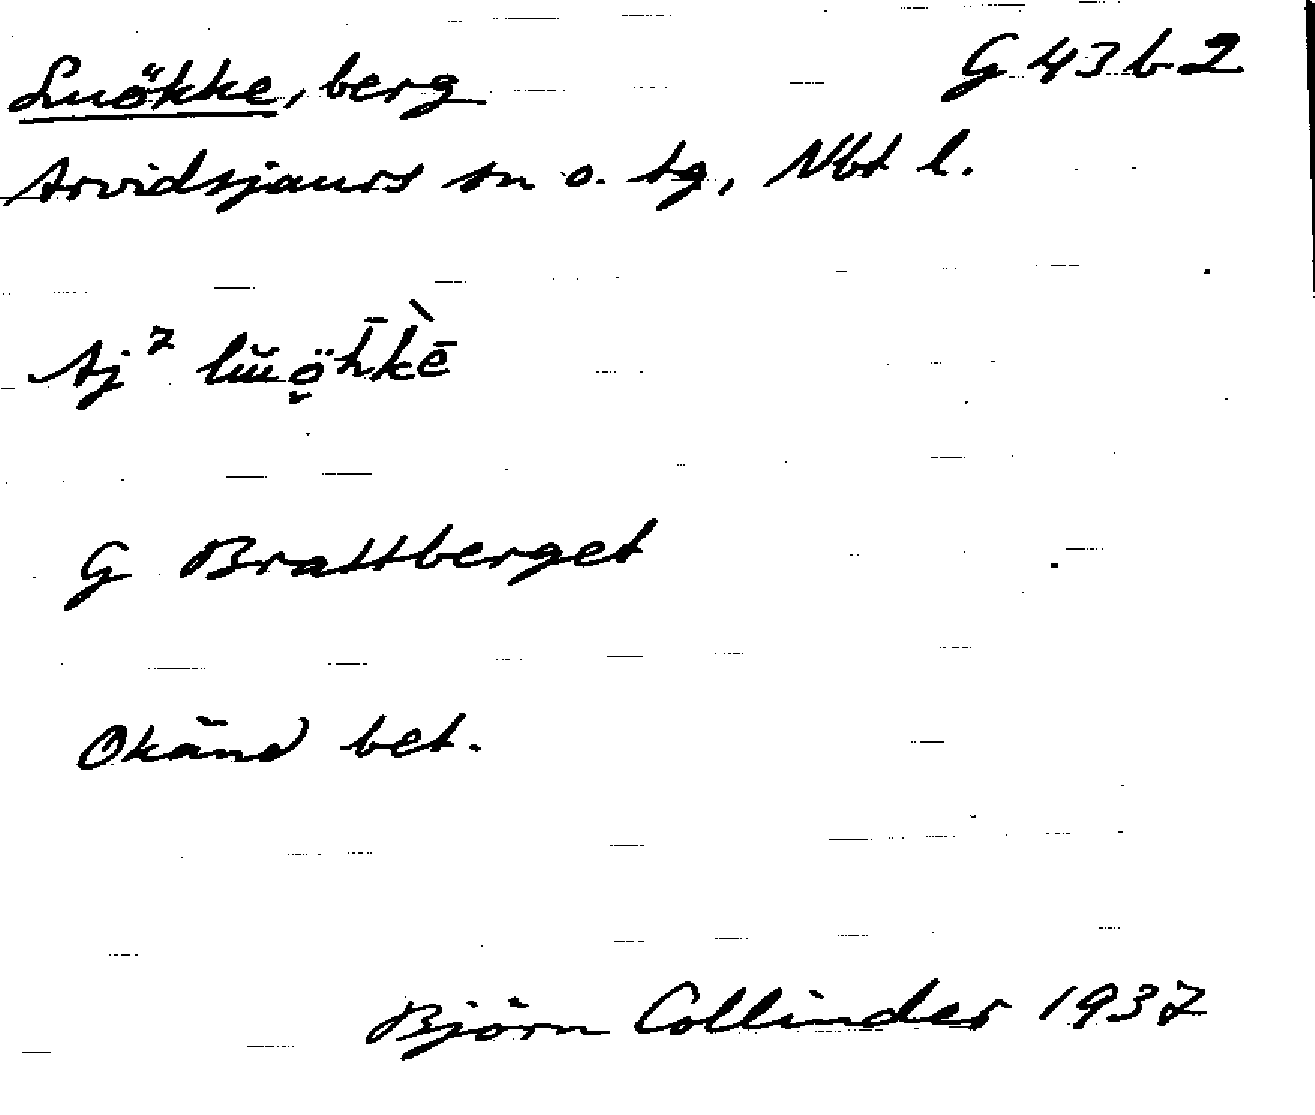 Luökke, berg G 43 b 2
Arvidsjaurs sn o. tg, Nbt l.
Aj²
G Brattberget
Okänd bet.
Björn Collinder 1937